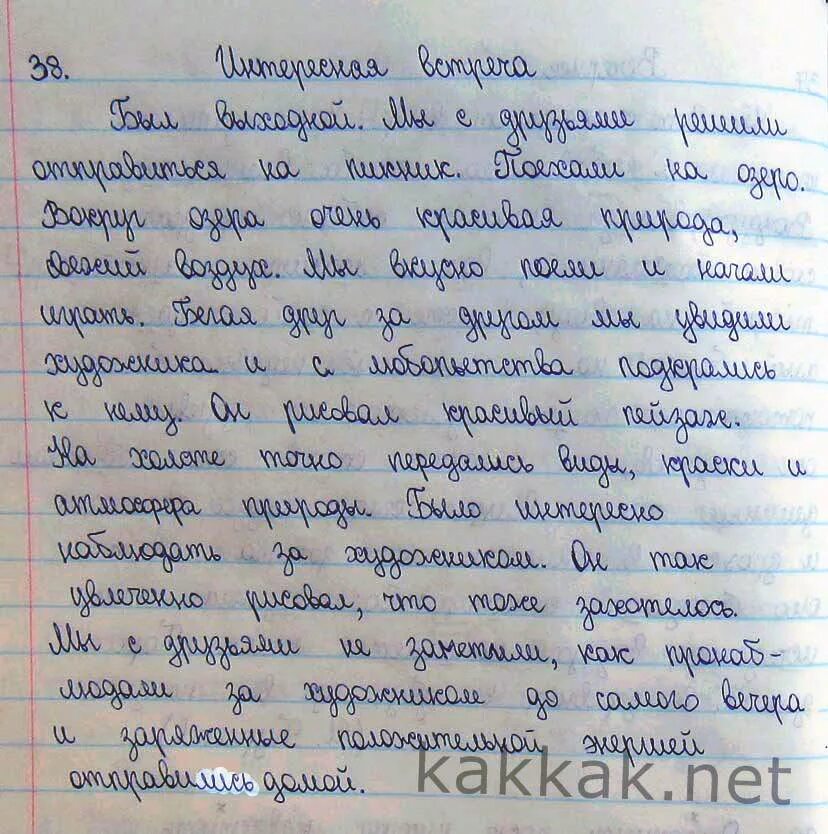 38. Интересная встреча
Был выходной. Мы с друзьями решили
отправиться на пикник. Поехали на озеро.
Вокруг озера очень красивая природа,
свежий воздух. Мы вкусно поели и начали
играть. Бегая друг за другом мы увидели
художника и с любопытства подкрались
к нему. Он рисовал красивый пейзаж.
На холсте точно передались виды, краски и
атмосфера природы. Было интересно
наблюдать за художником. Он так
увлеченно рисовал, что тоже захотелось.
Мы с друзьями не заметили, как пронаб-
людали за художником до самого вечера
и заряженные положительной энергией
отправились домой.
kakkak.net